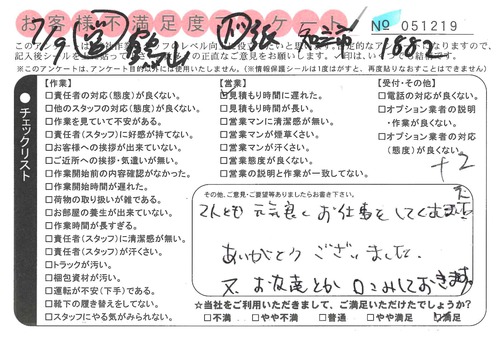 お客様不満足度アンケート
№ 051219
7/9
1882
※このアンケートは、アンケート目的以外には使用いたしません。(※情報保護シールは1度はがすと、再度貼りなおすことはできません)
チェックリスト
【作業】
□責任者の対応(態度)が良くない。
□他のスタッフの対応(態度)が良くない。
□作業を見ていて不安がある。
□責任者(スタッフ)に好感が持てない。
□お客様への挨拶が出来ていない。
□ご近所への挨拶・気遣いが無い。
□作業開始前の内容確認がなかった。
□作業開始時間が遅れた。
□荷物の取り扱いが雑である。
□お部屋の養生が出来ていない。
□作業時間が長すぎる。
□責任者(スタッフ)に清潔感が無い。
□責任者(スタッフ)が汗くさい。
□トラックが汚い。
□梱包資材が汚い。
□運転が不安(下手)である。
□靴下の履き替えをしてない。
□スタッフにやる気がみられない。
【営業】
□見積もり時間に遅れた。
□見積もり時間が長い。
□営業マンに清潔感が無い。
□営業マンが煙草くさい。
□営業マンが汗くさい。
□営業態度が良くない。
□営業の説明と作業が一致してない。
【受付・その他】
□電話の対応が良くない。
□オプション業者の説明・作業が良くない。
□オプション業者の対応(態度)が良くない。
+2
その他、ご意見・ご要望等ありましたらお書き下さい。
2人とも 元気良くお仕事をして
ありがとうございました。
又、お友達とか 口コミしておきます。
☆当社をご利用いただきまして、ご満足いただけたでしょうか?
□不満 □やや不満 □普通 □やや満足 □満足